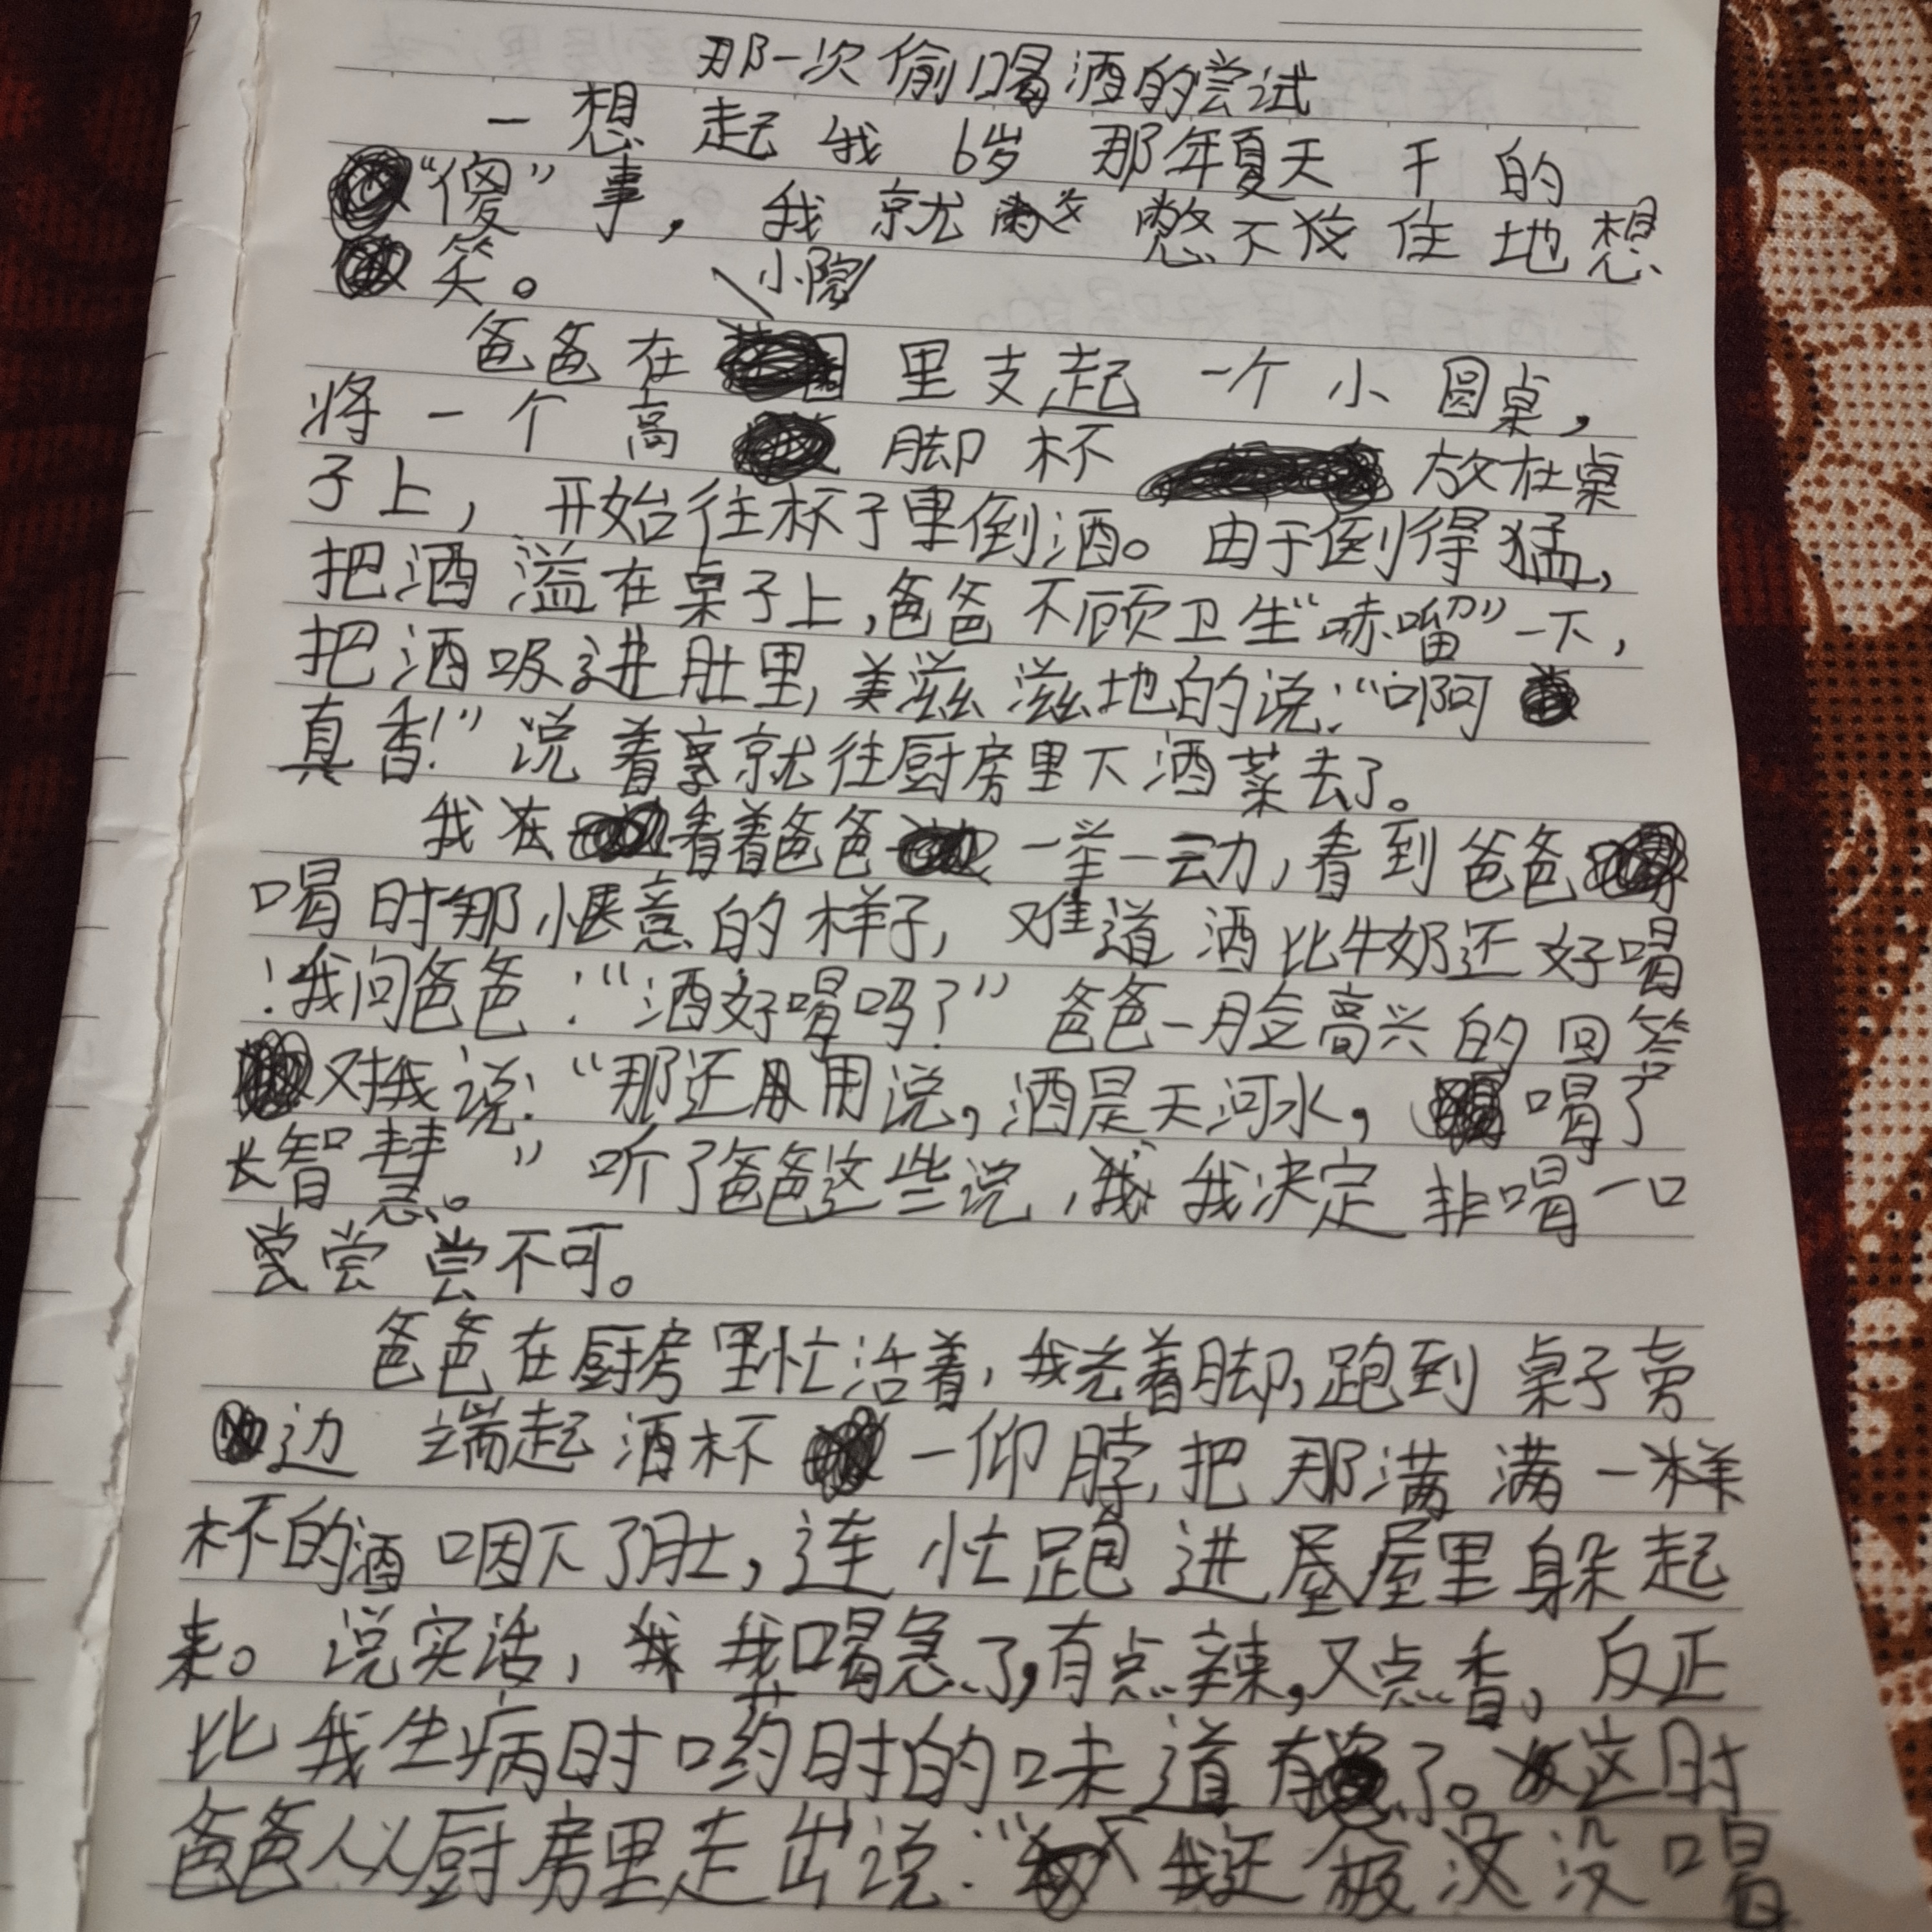 那一次偷喝酒的尝试
一想起我6岁那年夏天干的
“傻”事，我就憋不住地想
笑。
小院
爸爸在里支起一个小圆桌，
将一个高脚杯放在桌
子上，开始往杯子里倒酒。由于倒得猛，
把酒溢在桌子上，爸爸不顾卫生“哧嚠”一下，
把酒吸进肚里，美滋滋地的说：“啊
真香！”说着就往厨房里下酒菜去了。
我在看着爸爸一举一动，看到爸爸
喝时那惬意的样子，难道酒比牛奶还好喝
！我问爸爸：“酒好喝吗？”爸爸一脸高兴的回答
对我说：“那还用说，酒是天河水，喝了
长智慧。”听了爸爸这些说，我决定非喝一口
尝尝不可。
爸爸在厨房里忙活着，我光着脚，跑到桌子旁
边端起酒杯一仰脖，把那满满一样
杯的酒咽下了肚，连忙跑进屋里躲起
来。说实活，我喝急了，有点辣，又点香，反正
比我生病时药时的味道有了。这时
爸爸从厨房里走出说：“我还没喝